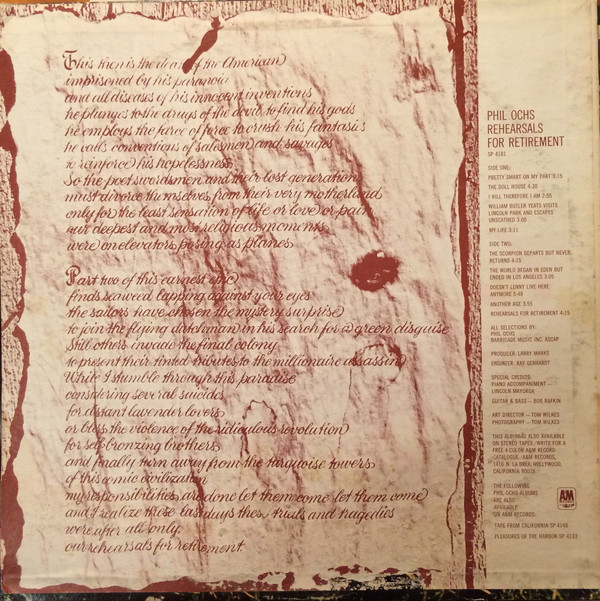 This then is the death of the American
imprisoned by his paranoia
and all diseases of his innocent inventions
he plunges to the drugs of the devil to find his gods
he employs the farce of force to crush his fantasies
he calls conventions of salesmen and savages
to reinforce his hopelessness
So the poet swordsmen and their lost generation
must divorce themselves from their very motherland
only for the least sensation of life or love or pain
our deepest and most religious moments
were on elevators posing as planes
Part two of this earnest epic
finds seaweed lapping against your eyes
the sailors have chosen the mystery surprise
to join the flying dutchman in his search for a green disguise
Still others invade the final colony
to present their tinted tributes to the millionaire assassin
While I stumble through this paradise
considering several suicides
for distant lavender lovers
or bless the violence of the ridiculous revolution
for self bronzing brothers
and finally turn away from the turquoise towers
of this comic civilization
my responsibilities are done let them come let them come
and I realize these last days these trials and tragedies
were after all only
our rehearsals for retirement.
PHIL OCHS
REHEARSALS
FOR RETIREMENT
SP 4181
SIDE ONE:
PRETTY SMART ON MY PART 3:15
THE DOLL HOUSE 4:30
I WILL THEREFORE I AM 2:55
WILLIAM BUTLER YEATS VISITS
LINCOLN PARK AND ESCAPES
UNSCATHED 3:00
MY LIFE 3:11
SIDE TWO:
THE SCORPION DEPARTS BUT NEVER
RETURNS 4:15
THE WORLD BEGAN IN EDEN BUT
ENDED IN LOS ANGELES 3:05
DOESN'T LENNY LIVE HERE
ANYMORE 5:48
ANOTHER AGE 3:55
REHEARSALS FOR RETIREMENT 4:15
ALL SELECTIONS BY:
PHIL OCHS
BARRICADE MUSIC INC. ASCAP
PRODUCER: LARRY MARKS
ENGINEER: RAY GERHARDT
SPECIAL CREDITS:
PIANO ACCOMPANIMENT —
LINCOLN MAYORGA
GUITAR & BASS — BOB RAFKIN
ART DIRECTOR — TOM WILKES
PHOTOGRAPHY — TOM WILKES
THIS ALBUM IS ALSO AVAILABLE
ON STEREO TAPES. WRITE FOR
A FREE COLOR A&M RECORD
CATALOGUE. A&M RECORDS,
1416 N. LA BREA, HOLLYWOOD,
CALIFORNIA 90028
THE FOLLOWING
PHIL OCHS ALBUMS
ARE ALSO
AVAILABLE
ON A&M RECORDS:
A&M
TAPE FROM CALIFORNIA SP 4148
PLEASURES OF THE HARBOR SP 4133